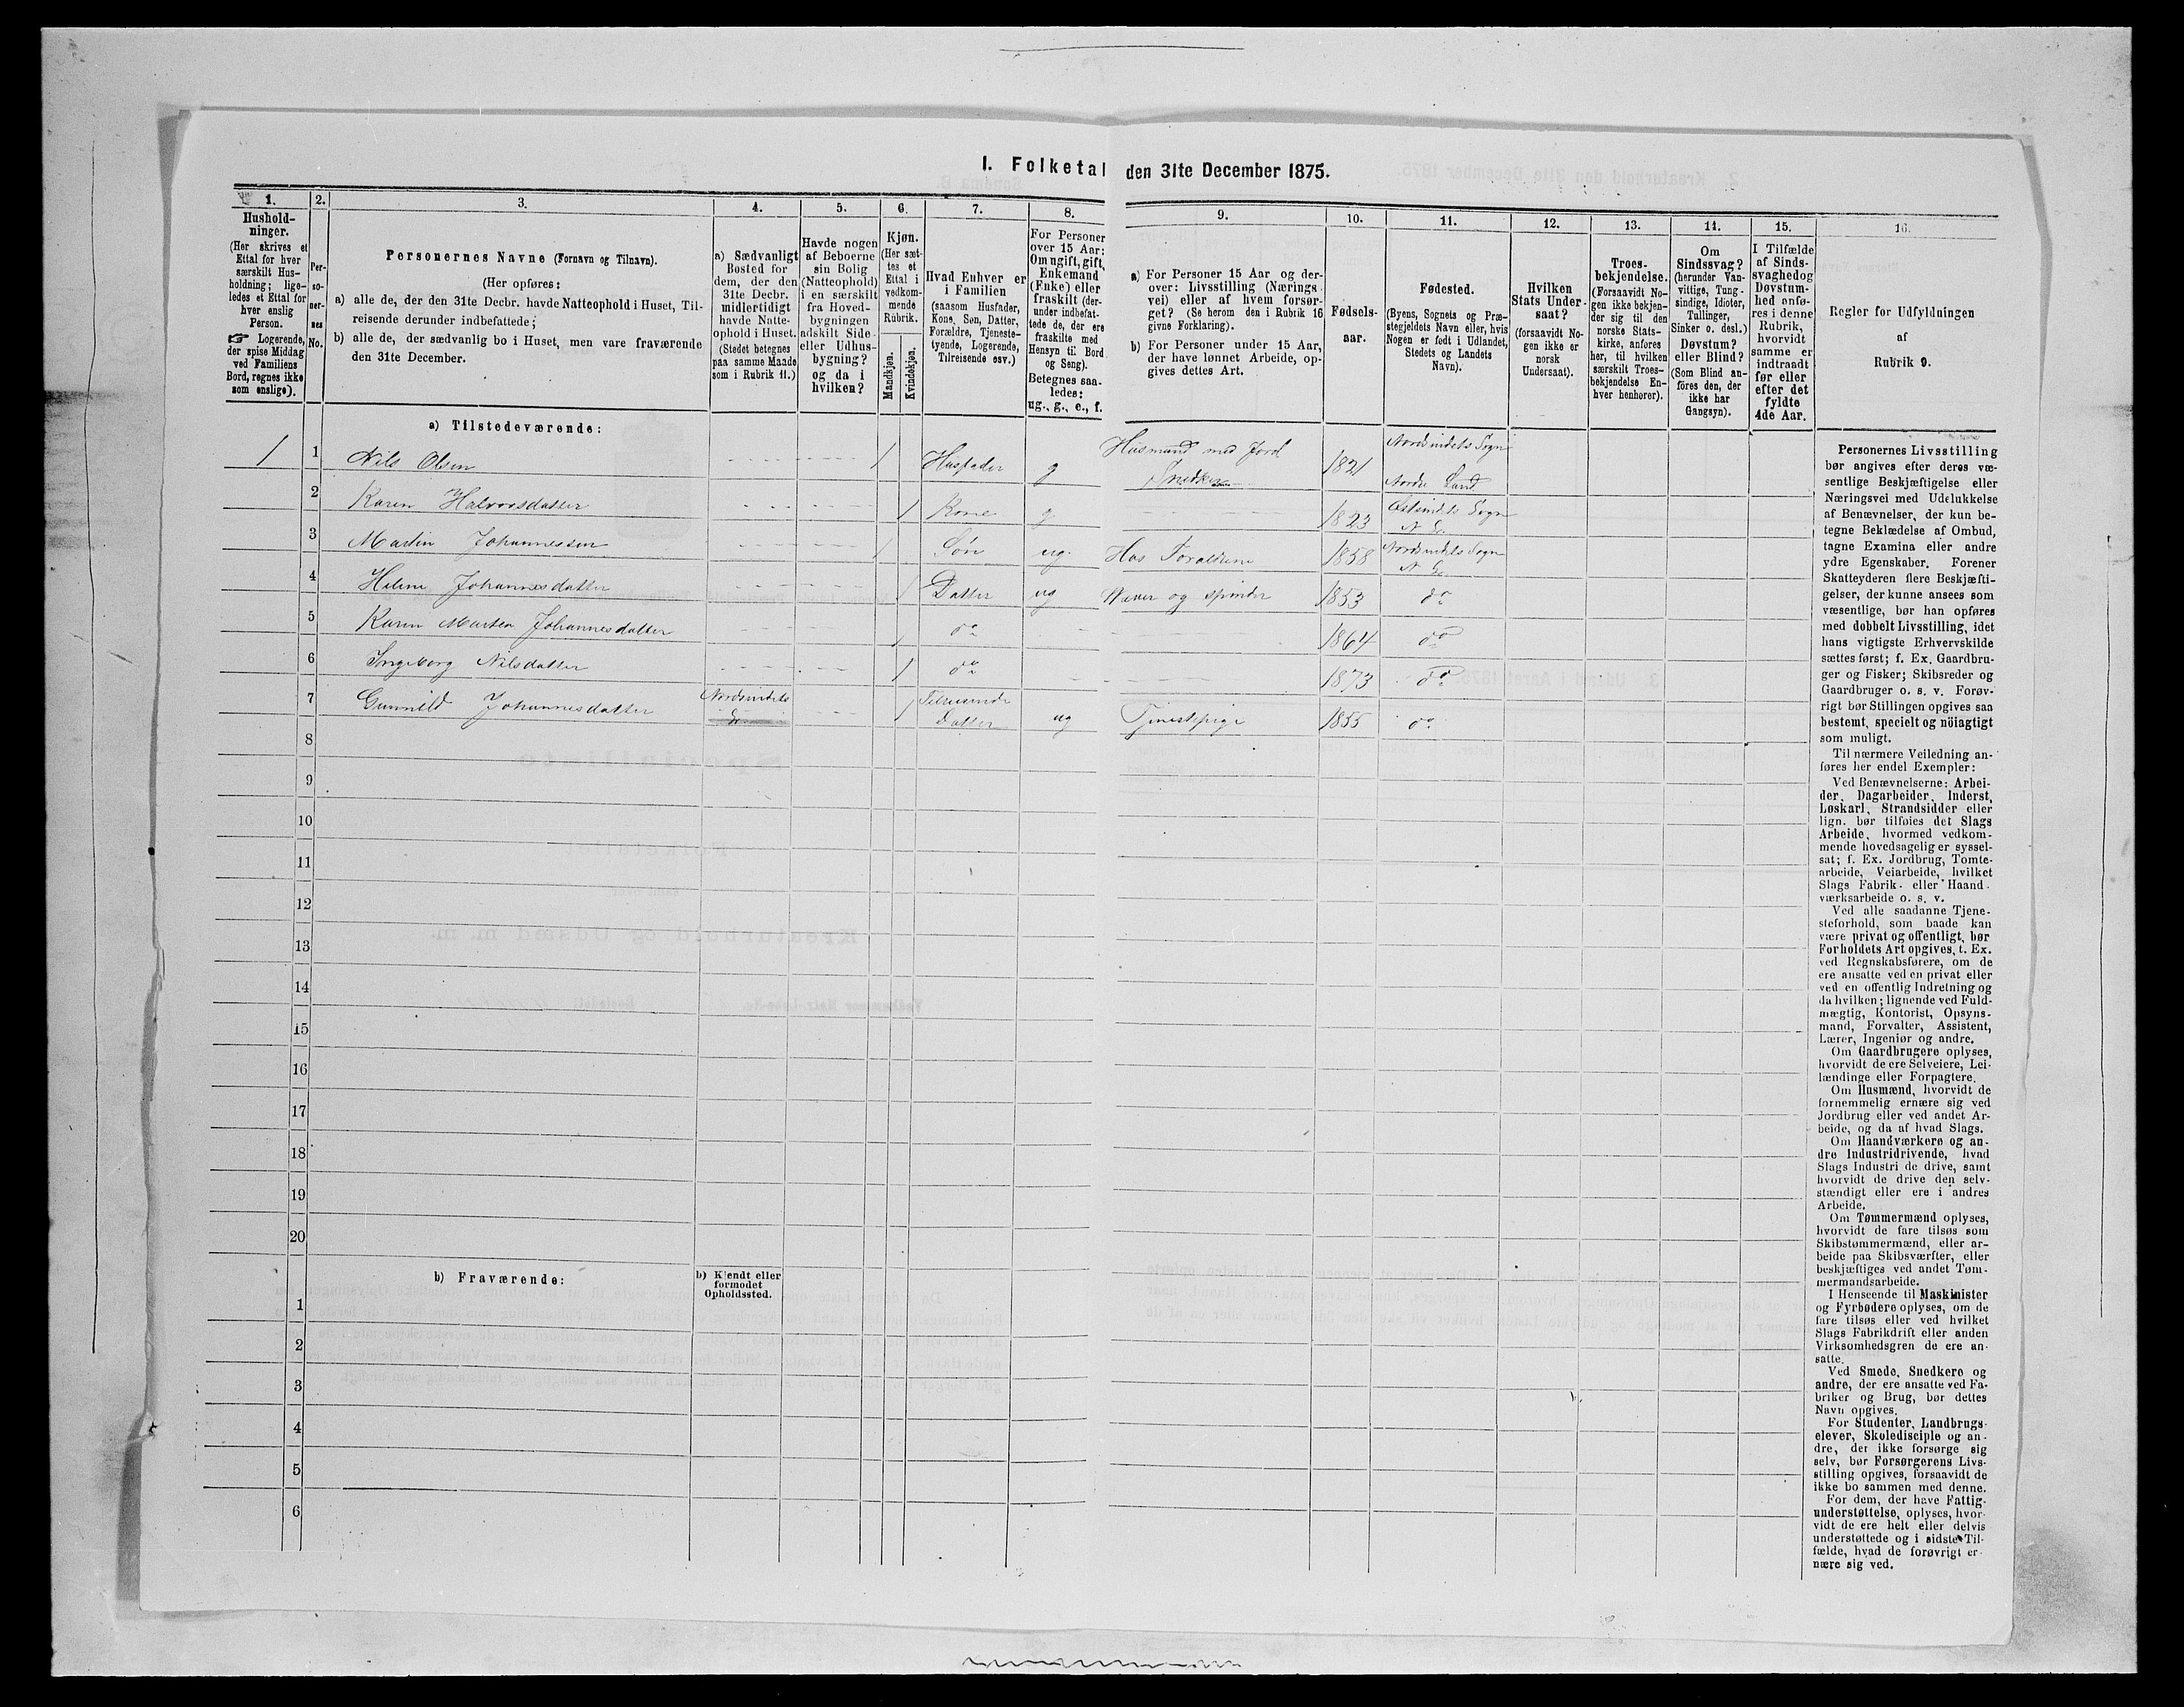 I. Folketal den 31te December 1875.
1.
Hushold-
ninger.
(Her skrives et
Ettal for hver
særskilt Hus-
holdning; lige-
ledes et Ettal for
hver enslig
Person.
☞ Logerende,
der spise Middag
ved Familiens
Bord, regnes ikke
som enslige).
2.
Per-
so-
ner-
nes
No.
3.
Personernes Navne (Fornavn og Tilnavn).
(Her opføres:
a) alle de, der den 31te Decbr. havde Natteophold i Huset, Til-
reisende derunder indbefattede;
b) alle de, der sædvanlig bo i Huset, men vare fraværende
den 31te December.
4.
a) Sædvanligt
Bosted for
dem, der den
31te Decbr.
midlertidigt
havde Natte-
ophold i Huset.
(Stedet betegnes
paa samme Maade
som i Rubrik 11.)
5.
Havde nogen
af Beboerne
sin Bolig
(Natteophold)
i en særskilt
fra Hoved-
bygningen
adskilt Side-
eller Udhus-
bygning?
og da i
hvilken?
6.
Kjøn.
(Her sæt-
tes et
Ettal i
vedkom-
mende
Rubrik.
Mandkjøn.
Kvindekjøn.
7.
Hvad Enhver er
i Familien
(saasom Husfader,
Kone, Søn, Datter,
Forældre, Tjeneste-
tyende, Logerende,
Tilreisende osv.)
8.
For Personer
over 15 Aar:
Om ugift, gift,
Enkemand
(Enke) eller
fraskilt (der-
under indbefat-
tede de, der ere
fraskilte med
Hensyn til Bord
og Seng).
Betegnes saa-
ledes:
ug., g., e., f.
9.
a) For Personer 15 Aar og der-
over: Livsstilling (Nærings-
vei) eller af hvem forsør-
get? (Se herom den i Rubrik 16
givne Forklaring).
b) For Personer under 15 Aar,
der have lønnet Arbeide, op-
gives dettes Art.
10.
Fødsels-
aar.
11.
Fødested.
(Byens, Sognets og Præ-
stegjeldets Navn eller, hvis
Nogen er født i Udlandet,
Stedets og Landets
Navn).
12.
Hvilken
Stats Under-
saat?
(forsaavidt No-
gen ikke er
norsk
Undersaat).
13.
Troes-
bekjendelse.
(Forsaavidt No-
gen ikke bekjen-
der sig til den
norske Stats-
kirke, anføres
her, til hvilken
særskilt Troes-
bekjendelse En-
hver henhører).
14.
Om
Sindssvag?
(herunder Van-
vittige, Tung-
sindige, Idioter,
Tullinger,
Sinker o. desl.)
Døvstum?
eller Blind?
(Som Blind an-
føres den, der
ikke har
Gangsyn).
15.
I Tilfælde
af Sinds-
svaghed og
Døvstum-
hed anfø-
res i denne
Rubrik,
hvorvidt
samme er
indtraadt
før eller
efter det
fyldte
4de Aar.
16.
Regler for Udfyldningen
af
Rubrik 9.
a) Tilstedeværende:
1 1 Nils Olsen 1 Husfader g Husmand med Jord Snedker 1821 Nordsindets Sogn Nordre Land
2 Karen Halvorsdatter 1 Kone g 1823 Østsindets Sogn N. L.
3 Martin Johannessen 1 Søn ug. Hos Forældrene 1858 Nordsindets Sogn N. L.
4 Helene Johannesdatter 1 Datter ug Væver og spinder 1853 do
5 Karen Martea Johannesdatter 1 do 1864 do
6 Ingeborg Nilsdatter 1 do 1873 do
7 Gunnild Johannesdatter Nordsindets 1 Tilreisende Datter ug Tjenestepige 1855 do
8
9
10
11
12
13
14
15
16
17
18
19
20
b) Fraværende:
b) Kjendt eller
formodet
Opholdssted.
1
2
3
4
5
6
Personernes Livsstilling
bør angives efter deres væ-
sentlige Beskjæftigelse eller
Næringsvei med Udelukkelse
af Benævnelser, der kun be-
tegne Beklædelse af Ombud,
tagne Examina eller andre
ydre Egenskaber. Forener
Skatteyderen flere Beskjæfti-
gelser, der kunne ansees som
væsentlige, bør han opføres
med dobbelt Livsstilling, idet
hans vigtigste Erhvervskilde
sættes først; f. Ex. Gaardbru-
ger og Fisker; Skibsreder og
Gaardbruger o. s. v. Forøv-
rigt bør Stillingen opgives saa
bestemt, specielt og nöiagtigt
som muligt.
Til nærmere Veiledning an-
føres her endel Exempler:
Ved Benævnelserne: Arbei-
der, Dagarbeider, Inderst,
Løskarl, Strandsidder eller
lign. bør tilføies det Slags
Arbeide, hvormed vedkom-
mende hovedsagelig er syssel-
sat; f. Ex. Jordbrug, Tomte-
arbeide, Veiarbeide, hvilket
Slags Fabrik- eller Haand-
værksarbeide o. s. v.
Ved alle saadanne Tjene-
steforhold, som baade kan
være privat og offentligt, bør
Forholdets Art opgives, t. Ex.
ved Regnskabsførere, om de
ere ansatte ved en privat eller
ved en offentlig Indretning og
da hvilken; lignende ved Fuld-
mægtig, Kontorist, Opsyns-
mand, Forvalter, Assistent,
Lærer, Ingeniør og andre.
Om Gaardbrugere oplyses,
hvorvidt de ere Selveiere, Lei-
lændinge eller Forpagtere.
Om Husmænd, hvorvidt de
fornemmelig ernære sig ved
Jordbrug eller ved andet Ar-
beide, og da af hvad Slags.
Om Haandværkere og an-
dre Industridrivende, hvad
Slags Industri de drive, samt
hvorvidt de drive den selv-
stændigt eller ere i andres
Arbeide.
Om Tømmermænd oplyses,
hvorvidt de fare tilsøs som
Skibstømmermænd, eller ar-
beide paa Skibsværfter, eller
beskjæftiges ved andet Tøm-
mermandsarbeide.
I Henseende til Maskinister
og Fyrbødere oplyses, om de
fare tilsøs eller ved hvilket
Slags Fabrikdrift eller anden
Virksomhedsgren de ere an-
satte.
Ved Smede, Snedkere og
andre, der ere ansatte ved Fa-
briker og Brug, bør dettes
Navn opgives.
For Studenter, Landbrugs-
elever, Skoledisciple og an-
dre, der ikke forsørge sig
selv, bør Forsørgerens Livs-
stilling opgives, forsaavidt de
ikke bo sammen med denne.
For dem, der have Fattig-
understøttelse, oplyses, hvor-
vidt de ere helt eller delvis
understøttede og i sidste Til-
fælde, hvad de forøvrigt er-
nære sig ved.